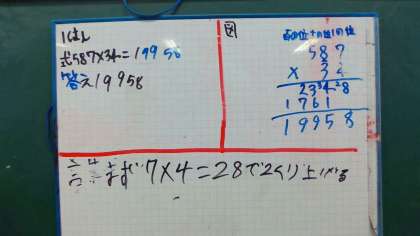 1はん
式587×34=19958
答え19958
図
百の位十の位一の位
587
×34
2348
1761
19958
言葉まず7×4=28で2くり上がる